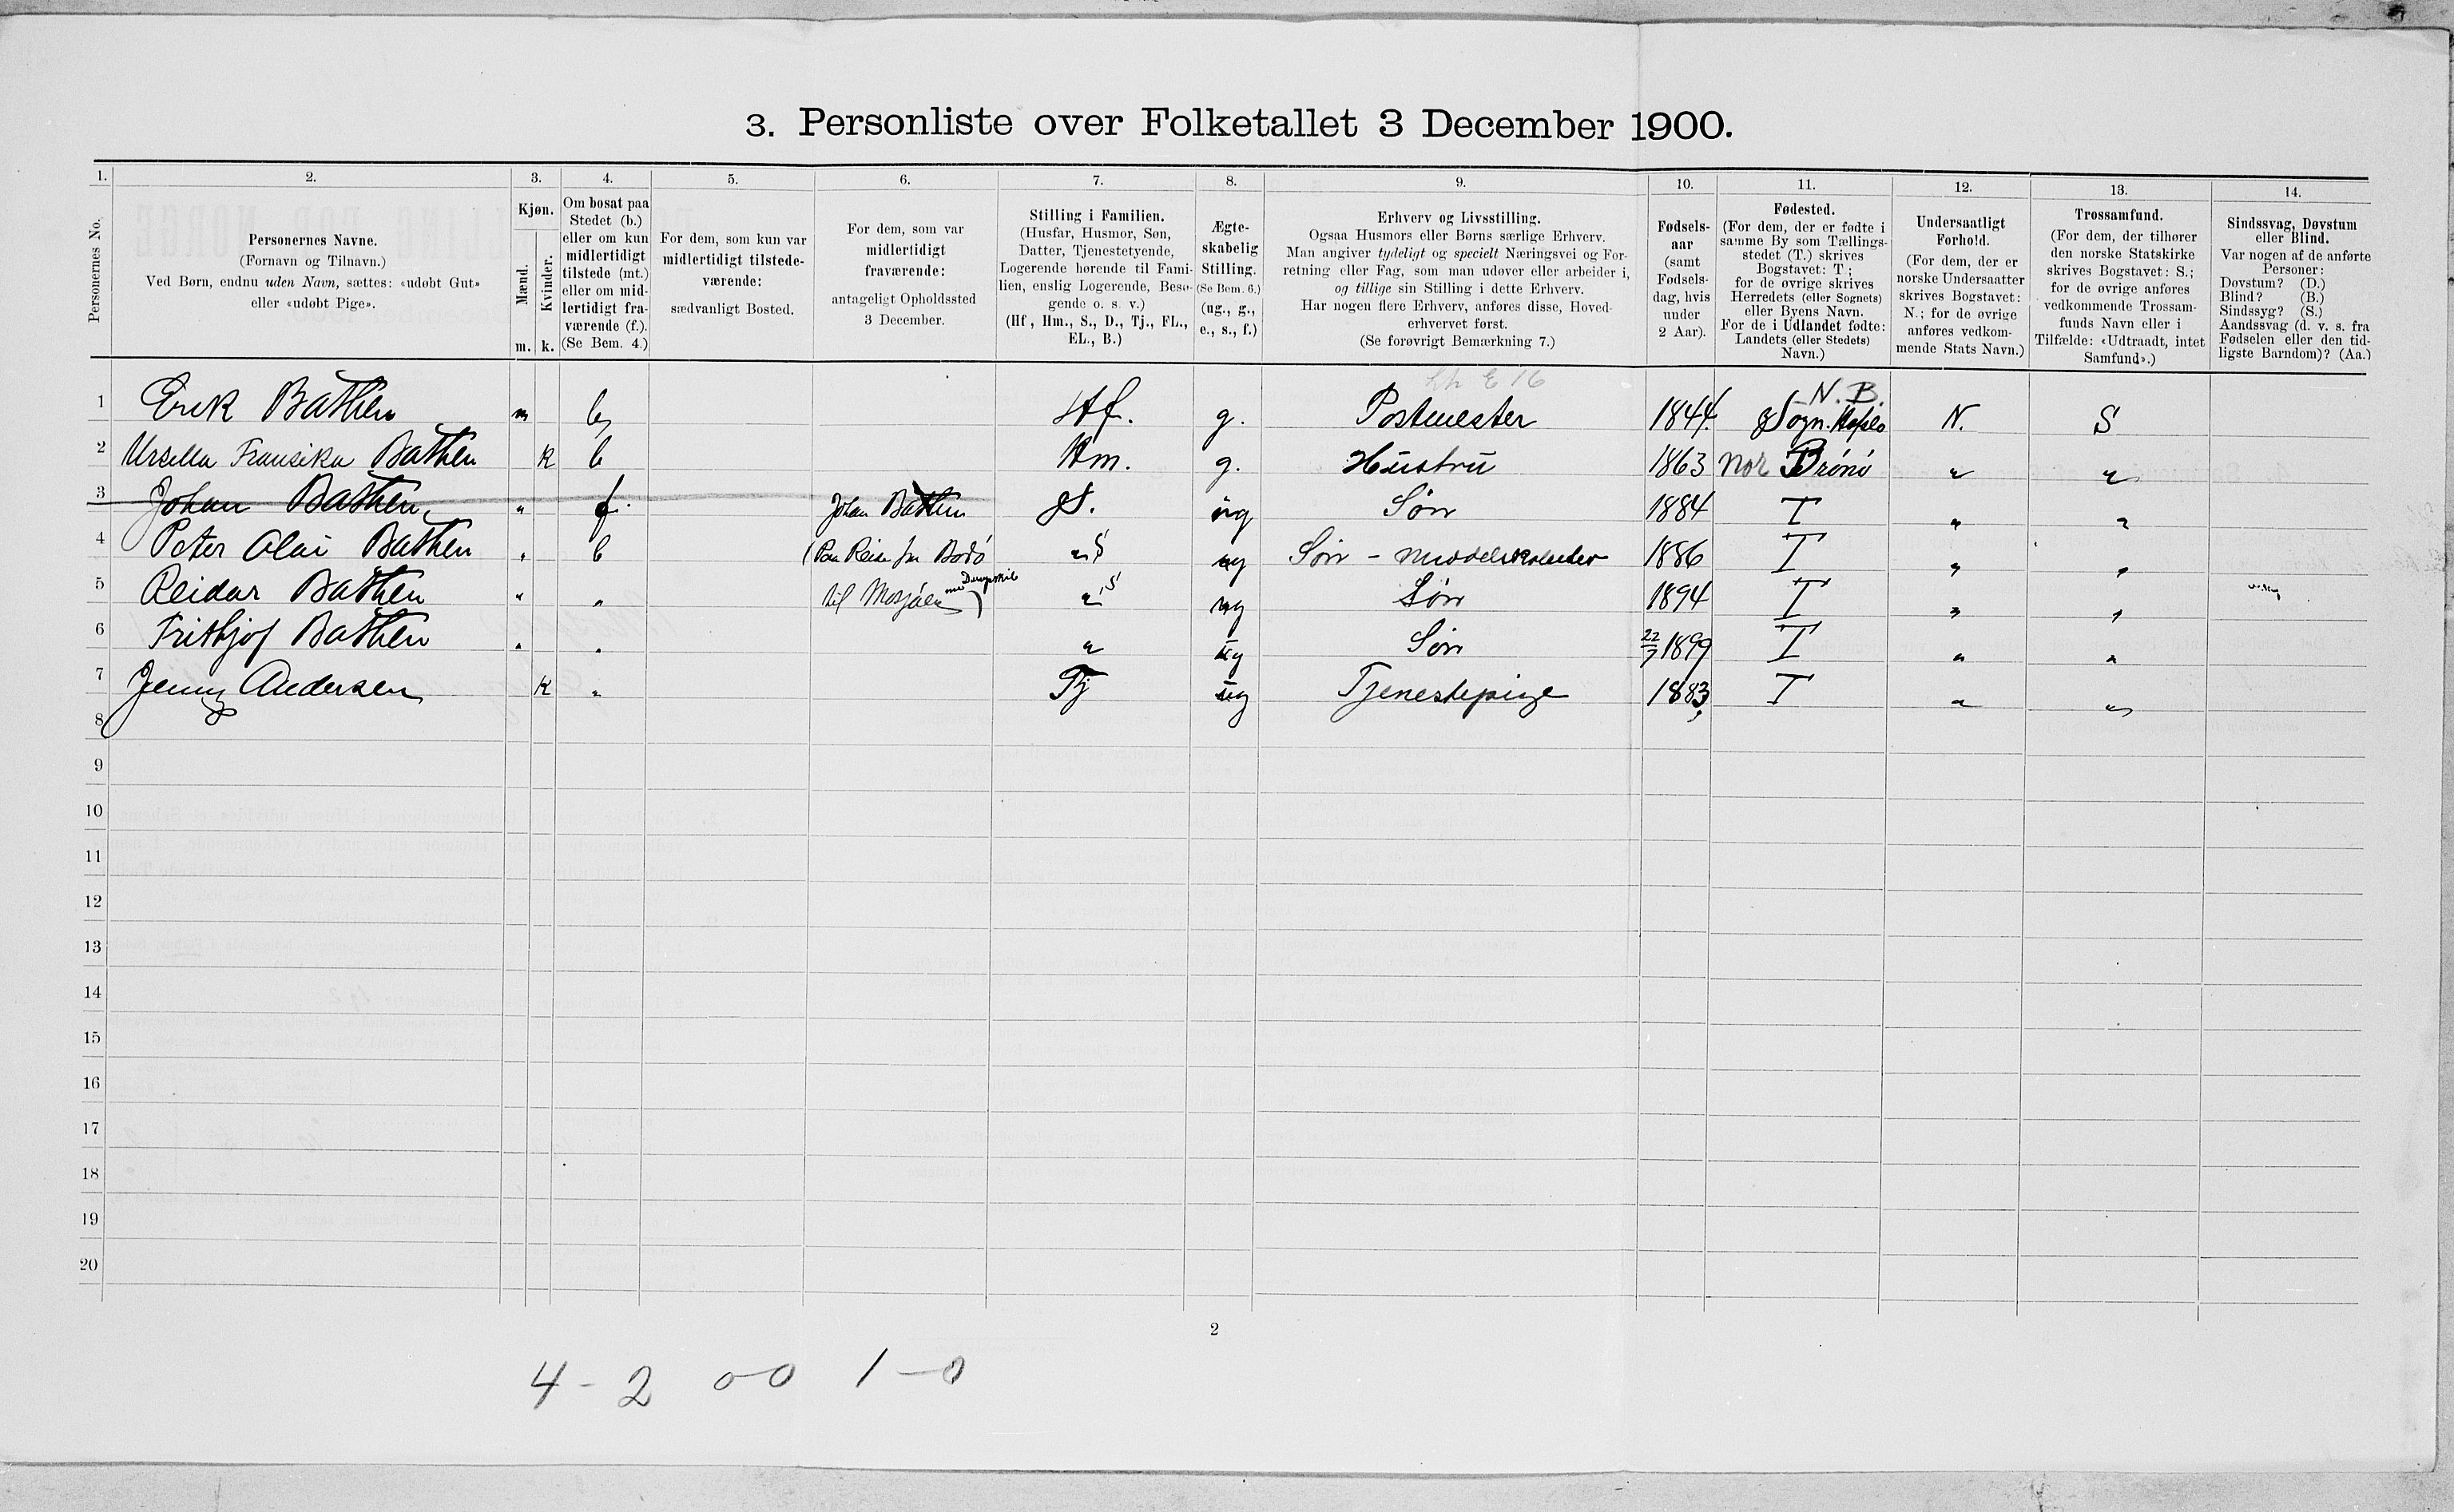 3. Personliste over Folketallet 3 December 1900.
1. 2. 3. 4. 5. 6. 7. 8. 9. 10. 11. 12. 13. 14.
Personernes No.
Personernes Navne.
(Fornavn og Tilnavn.)
Ved Børn, endnu uden Navn, sættes: «udøbt Gut»
eller «udøbt Pige».
Kjøn.
Mænd.
Kvinder.
m. k.
Om bosat paa
Stedet (b.)
eller om kun
midlertidigt
tilstede (mt.)
eller om mid-
lertidigt fra-
værende (f.).
(Se Bem. 4.)
For dem, som kun var
midlertidigt tilstede-
værende:
sædvanligt Bosted.
For dem, som var
midlertidigt
fraværende:
antageligt Opholdssted
3 December.
Stilling i Familien.
(Husfar, Husmor, Søn,
Datter, Tjenestetyende,
Logerende hørende til Fami-
lien, enslig Logerende, Besø-
gende o. s. v.)
(Hf, Hm., S., D., Tj., FL.,
EL., B.)
Ægte-
skabelig
Stilling.
(Se Bem. 6.)
(ug., g.,
e., s., f.)
Erhverv og Livsstilling.
Ogsaa Husmors eller Børns særlige Erhverv.
Man angiver tydeligt og specielt Næringsvei og For-
retning eller Fag, som man udøver eller arbeider i,
og tillige sin Stilling i dette Erhverv.
Har nogen flere Erhverv, anføres disse, Hoved-
erhvervet først.
(Se forøvrigt Bemærkning 7.)
Fødsels-
aar
(samt
Fødsels-
dag, hvis
under
2 Aar).
Fødested.
(For dem, der er fødte i
samme By som Tællings-
stedet (T.) skrives
Bogstavet: T;
for de øvrige skrives
Herredets (eller Sognets)
eller Byens Navn.
For de i Udlandet fødte:
Landets (eller Stedets)
Navn.)
Undersaatligt
Forhold.
(For dem, der er
norske Undersaatter
skrives Bogstavet:
N.; for de øvrige
anføres vedkom-
mende Stats Navn.)
Trossamfund.
(For dem, der tilhører
den norske Statskirke
skrives Bogstavet: S.;
for de øvrige anføres
vedkommende Trossam-
funds Navn eller i
Tilfælde: «Udtraadt, intet
Samfund».)
Sindssvag, Døvstum
eller Blind.
Var nogen af de anførte
Personer:
Døvstum? (D.)
Blind? (B.)
Sindssyg? (S.)
Aandssvag (d. v. s. fra
Fødselen eller den tid-
ligste Barndom)? (Aa.)
N. B.
1 Erik Bathen m b Hf. g. Postmester 1844. Sogn. Hafslo N. S
2 Ursella Fransika Bathen k b Hm. g. Hustru 1863 Nor Brønø " "
3 Johan Bathen, " f. Johan Bathen S. ug Søn 1884 T " "
4 Peter Olai Bathen " b (Paa Reise fra Bodø " S ug Søn - Middelskoleelev 1886 T " "
5 Reidar Bathen " " til Mosjøen med Dampskib) " S ug Søn 1894 T " "
6 Frithjof Bathen " " " ug Søn 22/7 1899 T " "
7 Jenny Andersen k " Tj ug Tjenestepige 1883, T " "
8
9
10
11
12
13
14
15
16
17
18
19
20
2
4 - 2 0-0 1-0